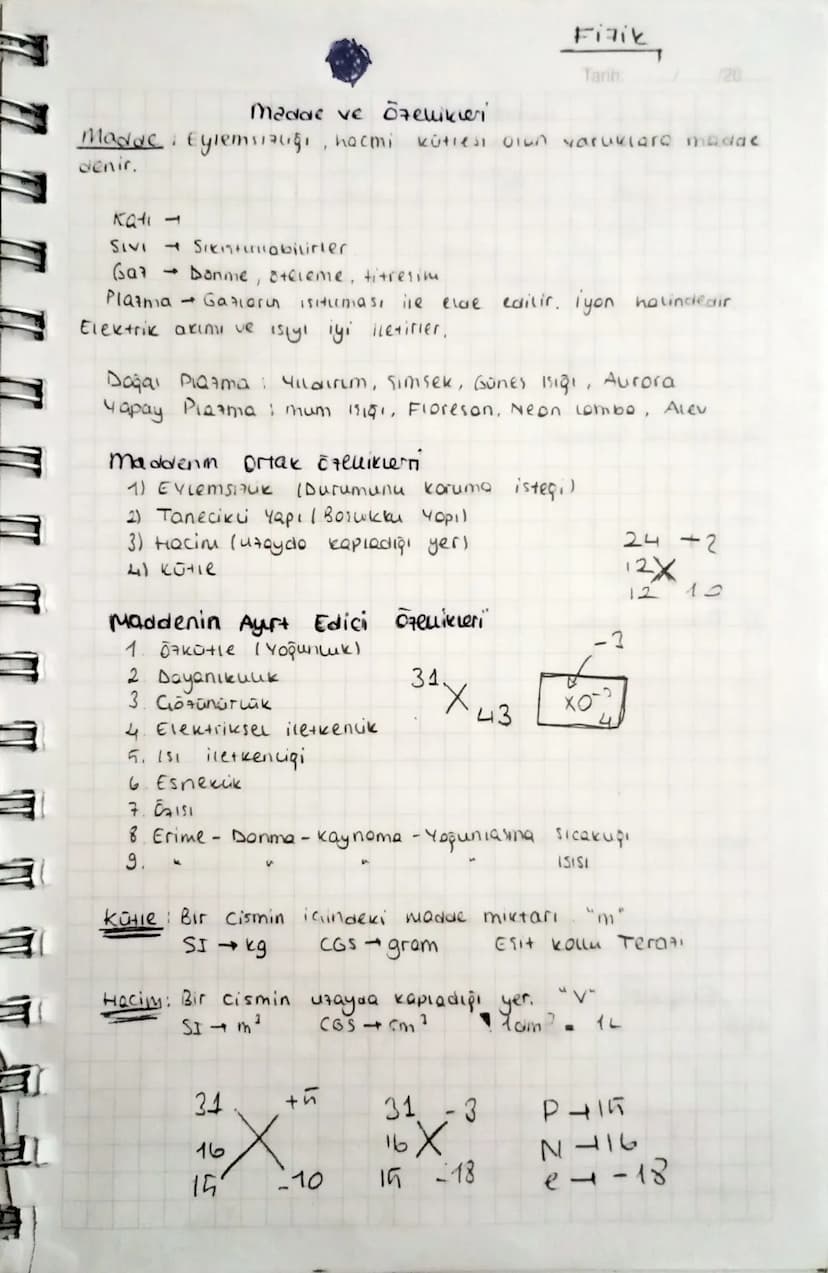 Fizik
Tarih: / /20
Madde ve Özellikleri
Madde : Eylemsizliği, hacmi kütlesi olan varlıklara madde
denir.
Katı →
Sıvı → Sıkıştırılabilirler
Gaz → Dönme, öteleme, titreşim
Plazma → Gazların ısıtılması ile elde edilir. İyon halindedir
Elektrik akımı ve ısıyı iyi iletirler.
Doğal Plazma : Yıldırım, Şimşek, Güneş ışığı, Aurora
Yapay Plazma : mum ışığı, Floresan, Neon lamba, Alev
Maddenin Ortak Özellikleri
1) Eylemsizlik (Durumunu koruma isteği)
2) Tanecikli Yapı (Boşluklu Yapı)
3) Hacim (uzayda kapladığı yer)
4) Kütle
24 +2
12 X
12 10
Maddenin Ayırt Edici Özellikleri
1. Özkütle (Yoğunluk)
2 Dayanıklılık
3. Çözünürlük
4. Elektriksel iletkenlik
5. Isı iletkenliği
6 Esneklik
7. Özısı
8 Erime - Donma - Kaynama - Yoğunlaşma sıcaklığı
9. " " " " ısısı
31 X 43
-3
XO⁻³
4
Kütle : Bir cismin içindeki madde miktarı. "m"
SI → kg CGS → gram Eşit kollu Terazi
Hacim : Bir cismin uzayda kapladığı yer. "V"
SI → m³ CGS → cm³ 1dm³ = 1L
31 +5 31 -3 P → 15
16 X 16 X N → 16
15 -10 15 -18 e → -18